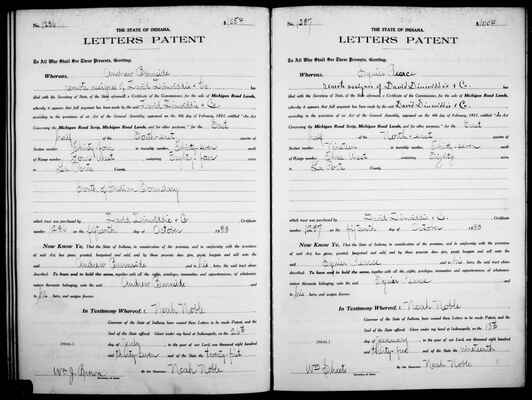 No. 1286
THE STATE OF INDIANA.
LETTERS PATENT
To All Who Shall See These Presents, Greeting.
Whereas, Andrew Burnside
remote assignee of David Dinwiddie & Co. has
filed with the Secretary of State, of the State aforesaid a Certificate of the Commissioner, for the sale of Michigan Road Lands,
whereby it appears that full payment has been made by the said David Dinwiddie & Co.
according to the provisions of an Act of the General Assembly, approved on the 9th day of February, 1831, entitled "An Act
Concerning the Michigan Road Scrip, Michigan Road Lands, and for other purposes," for the East
half of the quarter of
Section number Thirty four in township number Thirty seven
of Range number West containing Eighty four acres in
La Porte County,
North of Indian Boundary
which tract was purchased by David Dinwiddie & Co. Certificate
number 1286 on fifteenth day of October 1833
Now Know Ye, That the State of Indiana, in consideration of the premises, and in conformity with the provisions
of said Act, has given, granted, bargained and sold, and by these presents does give, grant, bargain and sell unto the
said Andrew Burnside and to his heirs, the said tract above
described: To have and to hold the same, together with all the rights, privileges, immunities and appurtenances, of whatsoever
nature thereunto belonging, unto the said Andrew Burnside and
to his heirs, and assigns forever.
In Testimony Whereof, I Noah Noble
Governor of the State of Indiana, have caused these Letters to be made Patent, and the
Seal of the State affixed. Given under my hand at Indianapolis, on the
(SEAL.) day of July in the year of our Lord, one thousand eight hundred
and thirty seven and of the State the twenty first
By the Governor: Noah Noble
Wm J. Brown
Secretary of State.
No. 1287
THE STATE OF INDIANA.
LETTERS PATENT
To All Who Shall See These Presents, Greeting.
Whereas, Squier Pearce
remote assignee of David Dinwiddie & Co. has
filed with the Secretary of State, of the State aforesaid a Certificate of the Commissioner, for the sale of Michigan Road Lands,
whereby it appears that full payment has been made by the said David Dinwiddie & Co.
according to the provisions of an Act of the General Assembly, approved on the 9th day of February, 1831, entitled "An Act
Concerning the Michigan Road Scrip, Michigan Road Lands, and for other purposes," for the West
half of the North east quarter of
Section number Nineteen in township number Thirty seven
of Range number Three West containing Eighty acres in
La Porte County,
which tract was purchased by David Dinwiddie & Co. Certificate
number 1287 on fifteenth day of October 1833
Now Know Ye, That the State of Indiana, in consideration of the premises, and in conformity with the provisions
of said Act, has given, granted, bargained and sold, and by these presents does give, grant, bargain and sell unto the
said Squier Pearce and to his heirs, the said tract above
described: To have and to hold the same, together with all the rights, privileges, immunities and appurtenances, of whatsoever
nature thereunto belonging, unto the said Squier Pearce and
to his heirs, and assigns forever.
In Testimony Whereof, I Noah Noble
Governor of the State of Indiana, have caused these Letters to be made Patent, and the
Seal of the State affixed. Given under my hand at Indianapolis, on the
(SEAL.) day of January in the year of our Lord, one thousand eight hundred
and thirty five and of the State the nineteenth
By the Governor: Noah Noble
Wm Sheets
Secretary of State.